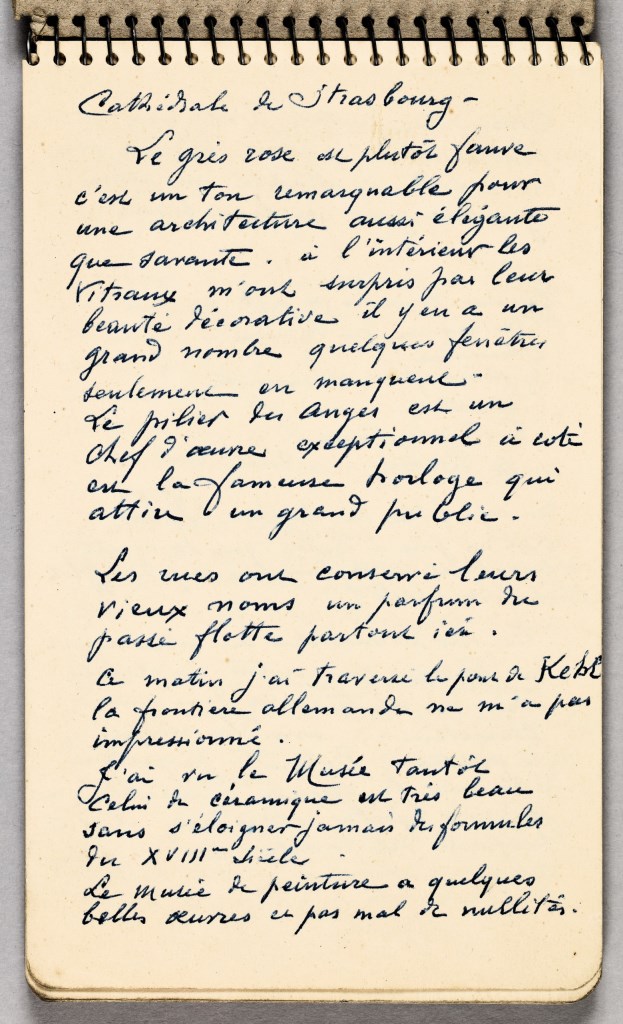 Cathédrale de Strasbourg –
Le grès rose est plutôt fauve
c'est un ton remarquable pour
une architecture aussi élégante
que savante. à l'intérieur les
Vitraux m'ont surpris par leur
beauté décorative il y en a un
grand nombre quelques fenêtres
seulement en manquent –
Le pilier des Anges est un
chef d'œuvre exceptionnel à coté
est la fameuse horloge qui
attire un grand public.
Les rues ont conservé leurs
vieux noms un parfum du
passé flotte partout ici.
Ce matin j'ai traversé le pont de Kehl
la frontière allemande ne m'a pas
impressionné.
J'ai vu le Musée tantôt
Celui de céramique est très beau
sans s'éloigner jamais des formules
du XVIIIme siècle
Le musée de peinture a quelques
belles œuvres et pas mal de nullités.